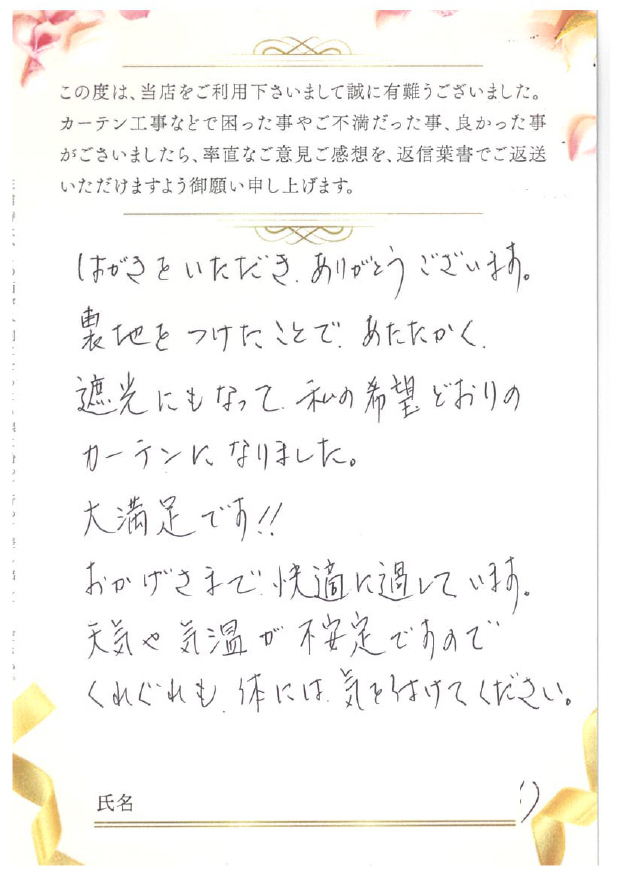 この度は、当店をご利用下さいまして誠に有難うございました。
カーテン工事などで困った事やご不満だった事、良かった事
がございましたら、率直なご意見ご感想を、返信葉書でご返送
いただけますよう御願い申し上げます。
はがきをいただき、ありがとうございます。
裏地をつけたことで、あたたかく、
遮光にもなって、私の希望どおりの
カーテンになりました。
大満足です!!
おかげさまで、快適に過しています。
天気や気温が不安定ですので
くれぐれも、体には、気を付けてください。
氏名